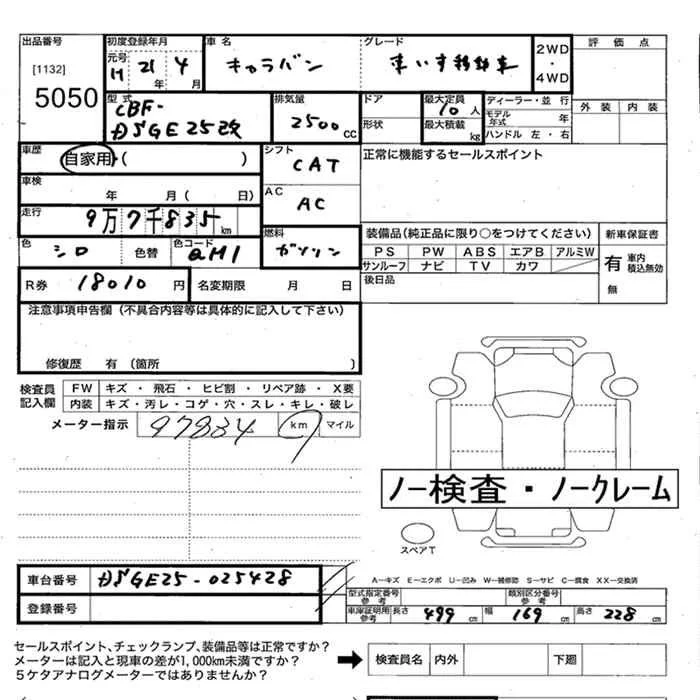 出品番号 初度登録年月 車名 グレード 2WD・4WD 評価点
[1132] 元号 H 21年 4月 キャラバン 車いす移動車
5050 型式 排気量 ドア 最大定員 ディーラー・並行 外装 内装
CBF- 2500cc 10人 モデル年式 年
DSGE25改 形状 最大積載 kg ハンドル 左・右
車歴 自家用・( ) シフト CAT 正常に機能するセールスポイント
車検 年 月( 日) AC AC
走行 9万7千835km 燃料 ガソリン 装備品(純正品に限り○をつけてください) 新車保証書
色 シロ 色替 色コード QM1 PS PW ABS エアB アルミW 有 車内積込無効
サンルーフ ナビ TV カワ 無
R券 18010円 名変期限 月 日 後日品
注意事項申告欄(不具合内容等は具体的に記入して下さい)
修復歴 有(箇所 )
検査員記入欄 FW キズ・飛石・ヒビ割・リペア跡・X要
内装 キズ・汚レ・コゲ・穴・スレ・キレ・破レ
メーター指示 97834 km マイル
ノー検査・ノークレーム
スペアT
車台番号 DSGE25-025428 A-キズ E-エクボ U-凹み W-補修跡 S-サビ C-腐食 XX-交換済
登録番号 型式指定番号参考 類別区分番号参考
車庫証明用参考 長さ 499cm 幅 169cm 高さ 228cm
セールスポイント、チェックランプ、装備品等は正常ですか?
メーターは記入と現車の差が1,000km未満ですか?
5ケタアナログメーターではありませんか?
検査員名 内外 下廻